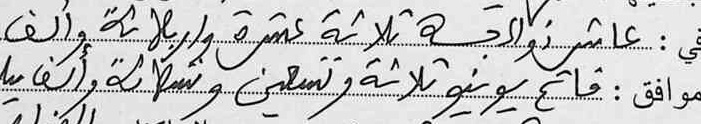 في : عاشر ذو الحجة ثلاثة عشرة واربعمائة وألف
موافق : فاتح يونيو ثلاثة وتسعين وتسعمائة وألف